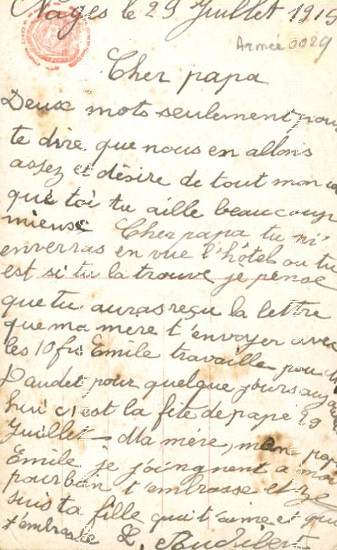 Nages le 29 Juillet 1915
Armée 0029
Cher papa
Deux mots seulement pour
te dire que nous en allons
assez et désire de tout mon
que toi tu aille beaucoup
mieux Cher papa tu m'
enverras en vue l'hôtel ou tu
est si tu la trouve je pense
que tu auras reçu la lettre
que ma mère t'envoyer avec
les 10 fr. Emile travaille pour
Daudet pour quelque jours auj
hui c'est la fête de pape 29
Juillet Ma mère, mon pap
Emile je joingnent a moi
pour t'embrasse et je
suis ta fille qui t'aime et qui
t'embrasse L.